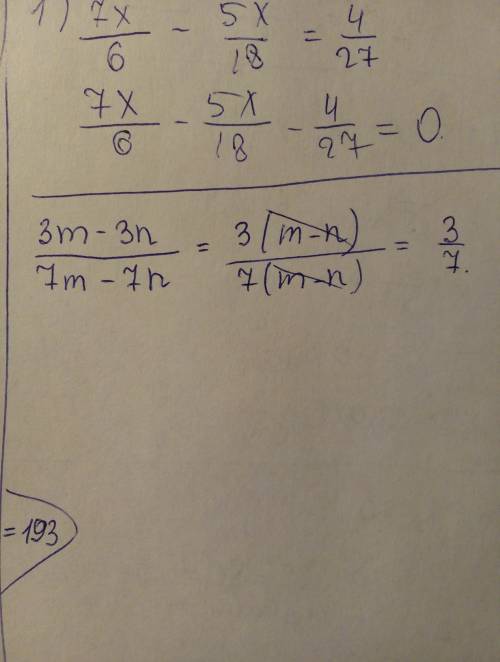 1) 7x/6 - 5x/18 = 4/27
7x/6 - 5x/18 - 4/27 = 0.
3m-3n/7m-7n = 3(m-n)/7(m-n) = 3/7.
=193